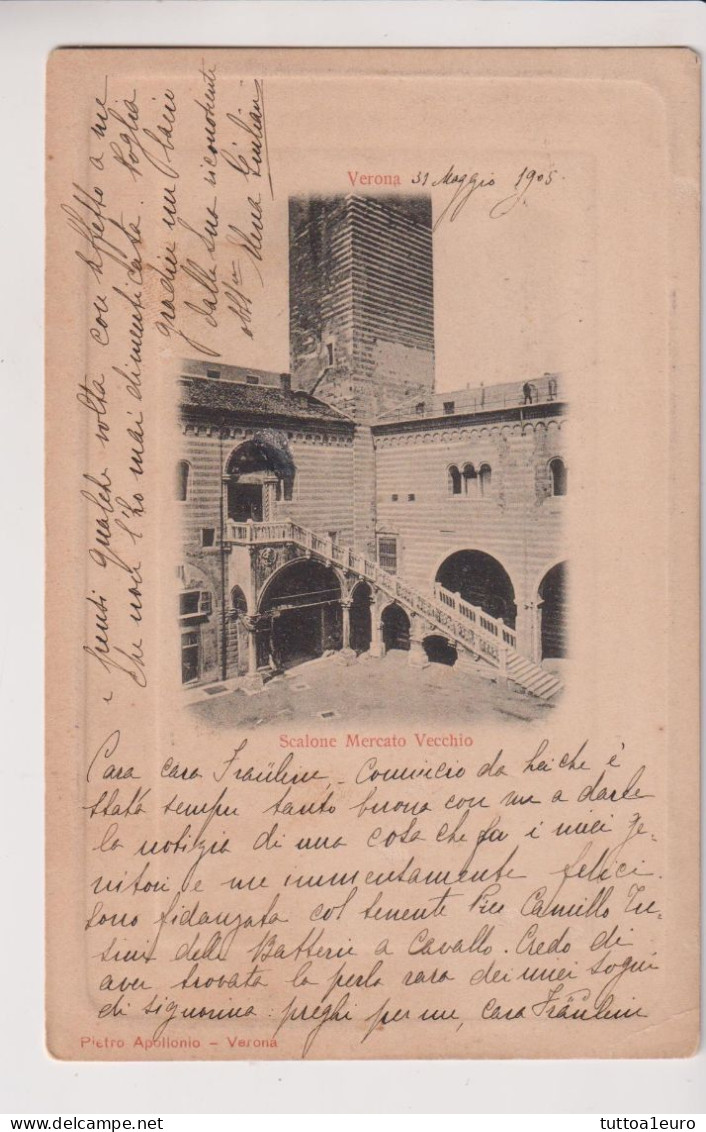 Verona 31 Maggio 1905.
Scalone Mercato Vecchio
Cara cara Fraülein, Comincio da Lei che è
stata sempre tanto buona con me a darle
la notizia di una cosa che fa i miei ge-
nitori e me immensamente felici.
Sono fidanzata col tenente Camillo
delle Batterie a Cavallo. Credo di
aver trovata la perla rara dei miei sogni
di signorina: preghi per me, cara Fräulein
e pensi qualche volta con affetto a me
che non l'ho mai dimenticata. Voglia
gradire un bacio
dalla sua riconoscente
Pietro Apollonio - Verona
Delcampe.net
tuttoa1euro